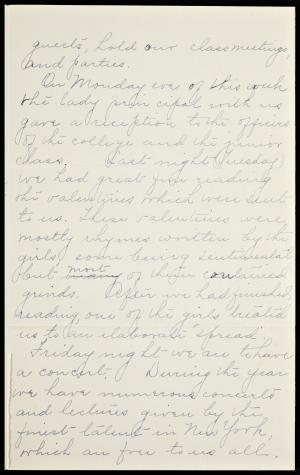 guests, hold our class meetings,
and parties.
On Monday eve of this week
the lady principal with us
gave a reception to the officers
of the college and the junior
class. Last night (Tuesday)
we had great fun reading
the valentines which were sent
to us. These valentines were
mostly rhymes written by the
girls, some being sentimental
but most of them contained
grinds. After we had finished
reading, one of the girls treated
us to an elaborate "spread".
Friday night we are to have
a concert. During the year
we have numerous concerts
and lectures given by the
finest talent in New York,
which are free to us all.